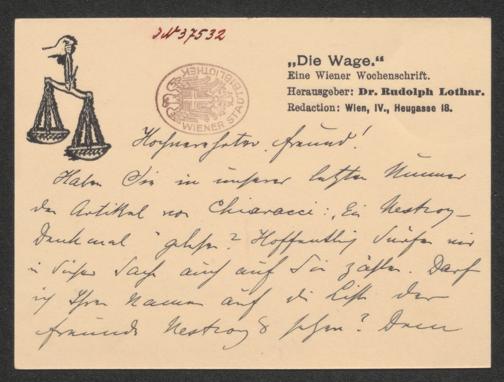 JN 37532
„Die Wage.“
Eine Wiener Wochenschrift.
Herausgeber: Dr. Rudolph Lothar.
Redaction: Wien, IV., Heugasse 18.
WIENER STADTBIBLIOTHEK
Hochverehrter Freund!
Haben Sie in unserer letzten Nummer
den Artikel von Chiavacci: „Ein Nestroy-
Denkmal" gelesen? Hoffentlich dürfen wir
in dieser Sache auch auf Sie zählen. Darf
ich Ihren Namen auf die Liste der
Freunde Nestroys setzen? Denn